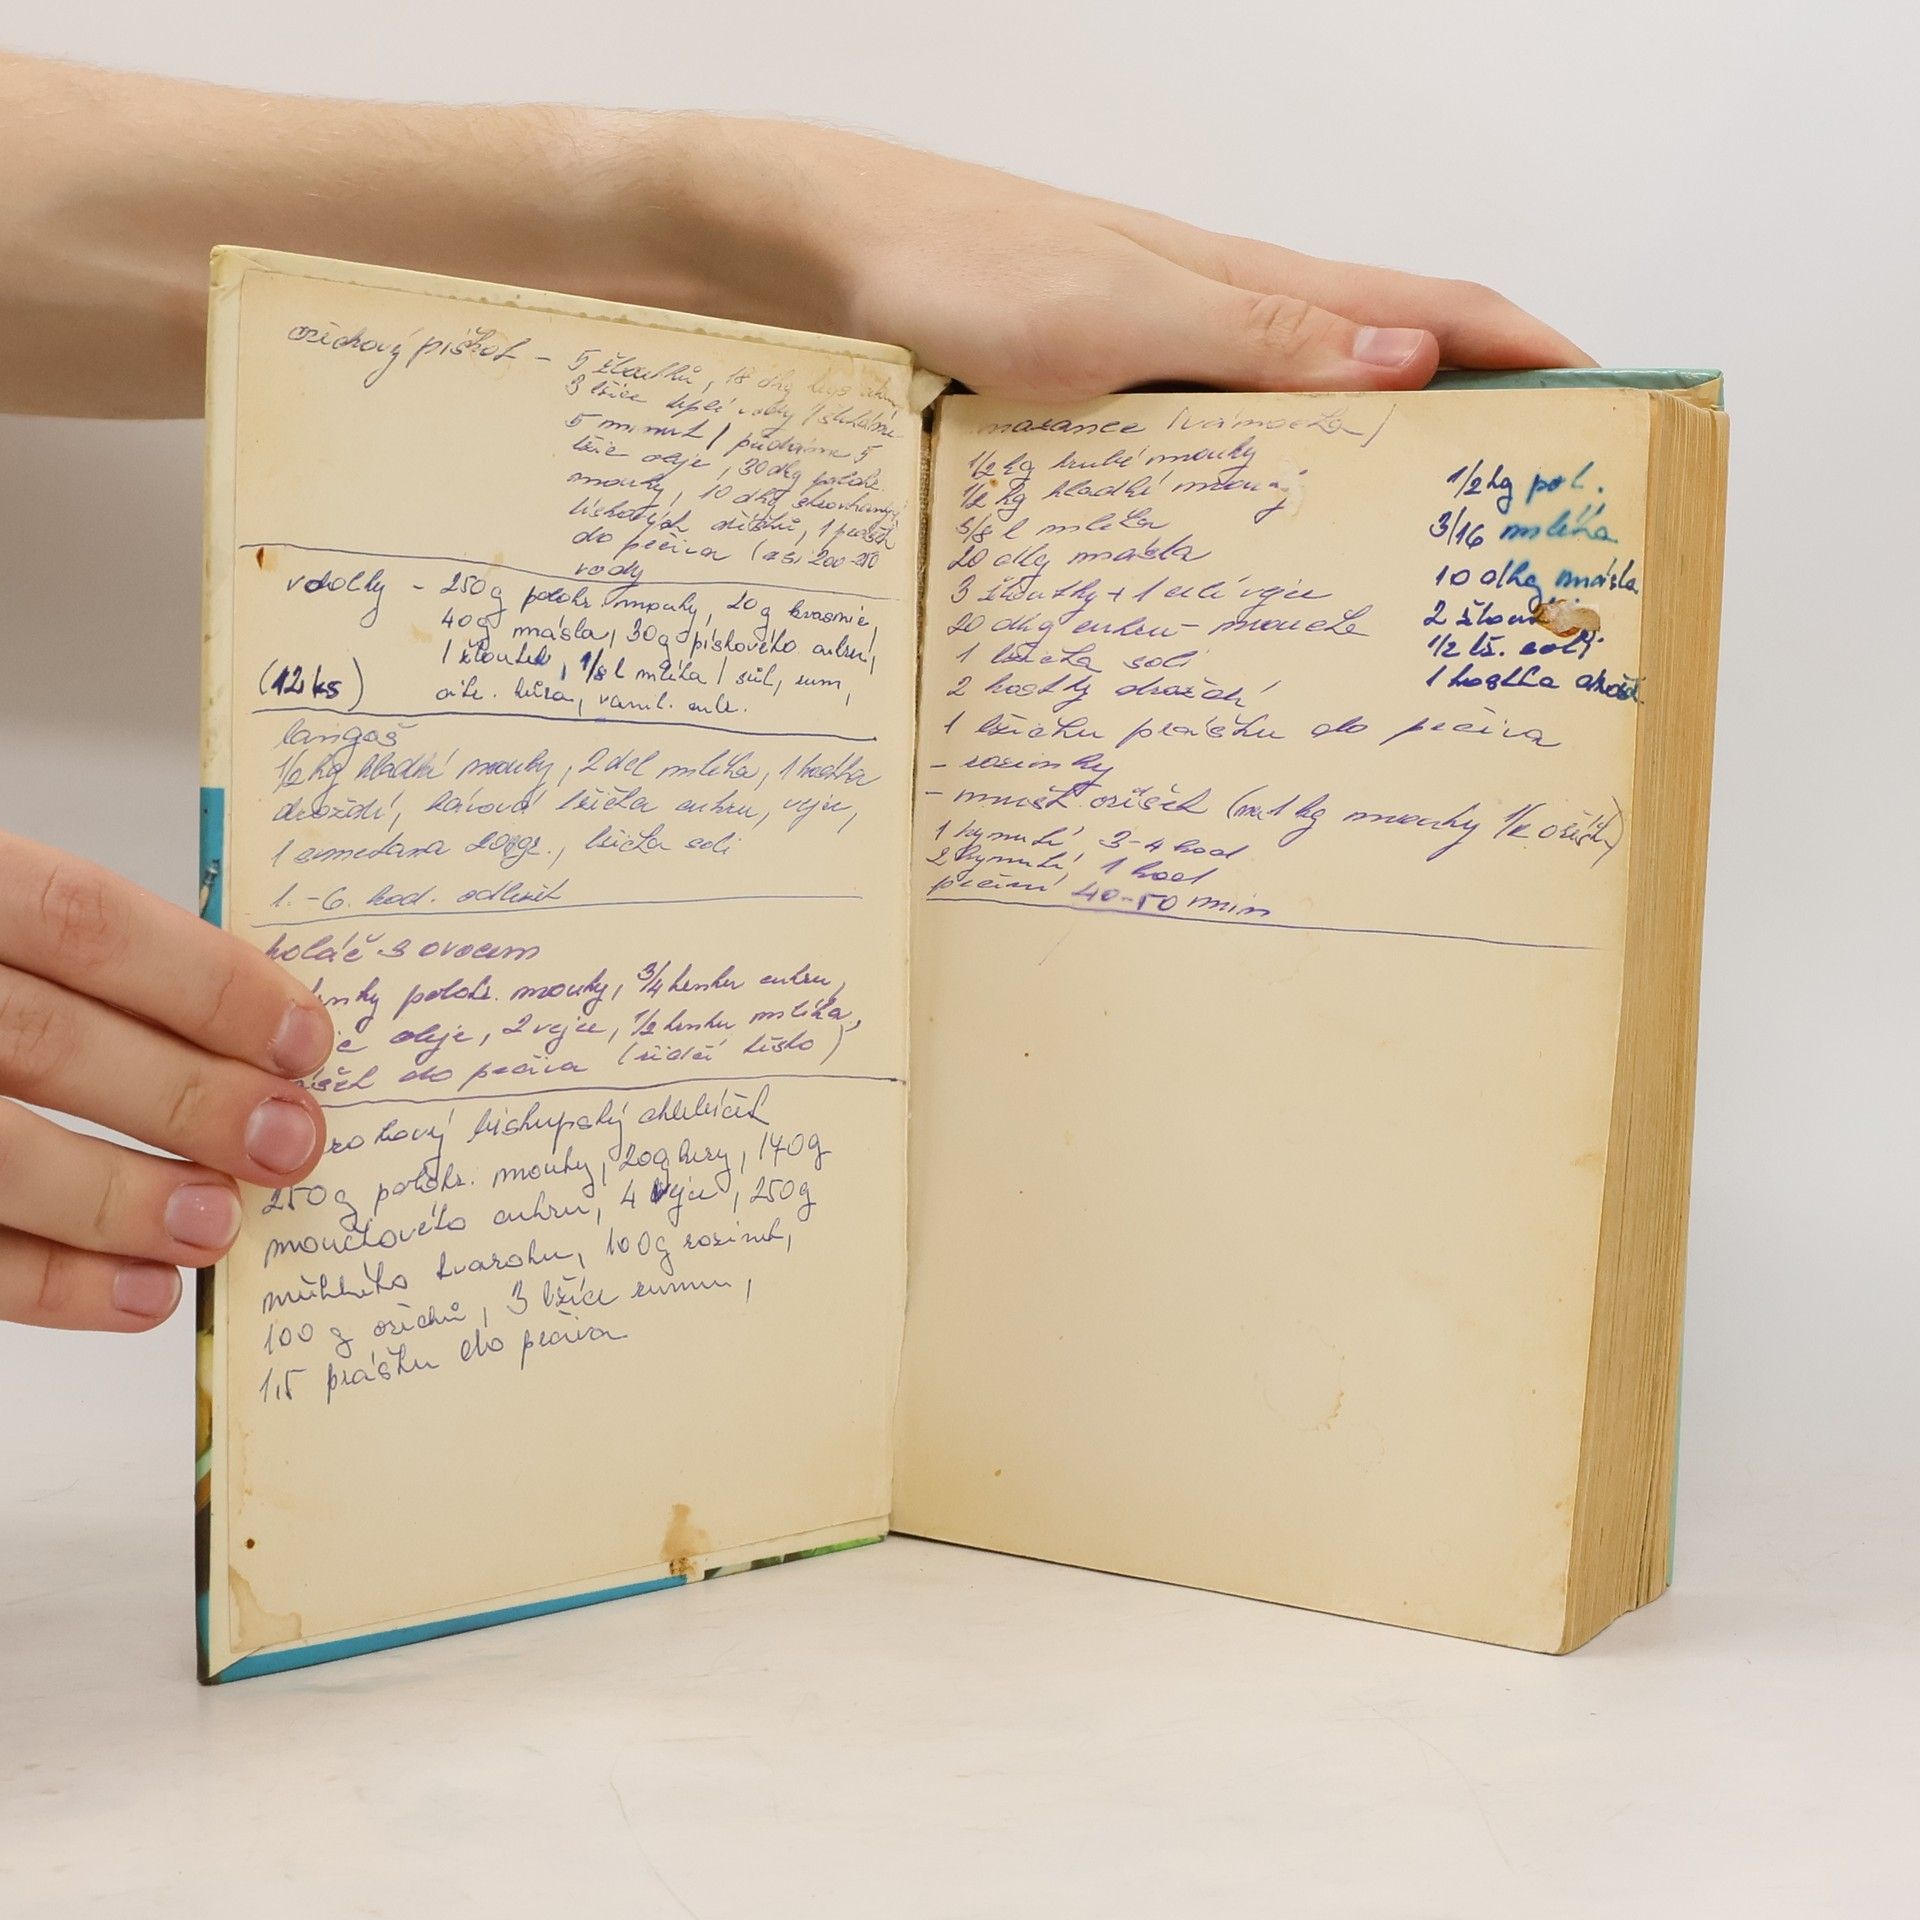 ořechový piškot - 5 žloutků, 18 dkg
3 lžíce teplé vody / šleháme
5 minut / přidáme 5
lžic oleje, 30 dkg polohr.
mouky, 10 dkg strouhaných
lískových oříšků, 1 prášek
do pečiva (asi 200-250
vody
vdolky - 250g polohr. mouky, 20g kvasnic,
40g másla, 30g pískového cukru,
1 žloutek, 1/8 l mléka / sůl, rum,
citr. kůra, vanil. cukr.
(12 ks)
langoš
1/2 kg hladké mouky, 2 del mléka, 1 kostka
droždí, kávová lžička cukru, vejce,
1 smetana 200gr., lžička soli
1.-6. hod. odležet
koláč s ovocem
polohr. mouky, 3/4 hrnku cukru,
oleje, 2 vejce, 1/2 hrnku mléka,
do pečiva (řidčí těsto)
biskupský chlebíček
250g polohr. mouky, 20g hery, 140g
moučkového cukru, 4 vejce, 250g
měkkého tvarohu, 100g rozinek,
100 g ořechů, 3 lžíce rumu,
1,5 prášku do pečiva
mazance (vánočka)
1/2 kg hrubé mouky
1/2 kg hladké mouky
5/8 l mléka
20 dkg másla
3 žloutky + 1 celé vejce
20 dkg cukru - moučka
1 lžička soli
2 kostky droždí
1 lžičku prášku do pečiva
- rozinky
- mušk. oříšek (na 1 kg mouky 1/2 oříšk.)
1 kynutí 3-4 hod
2 kynutí 1 hod
pečení 40-50 min
1/2 kg pol.
3/16 mléka
10 dkg másla
2
1/2 lž. soli
1 kostka